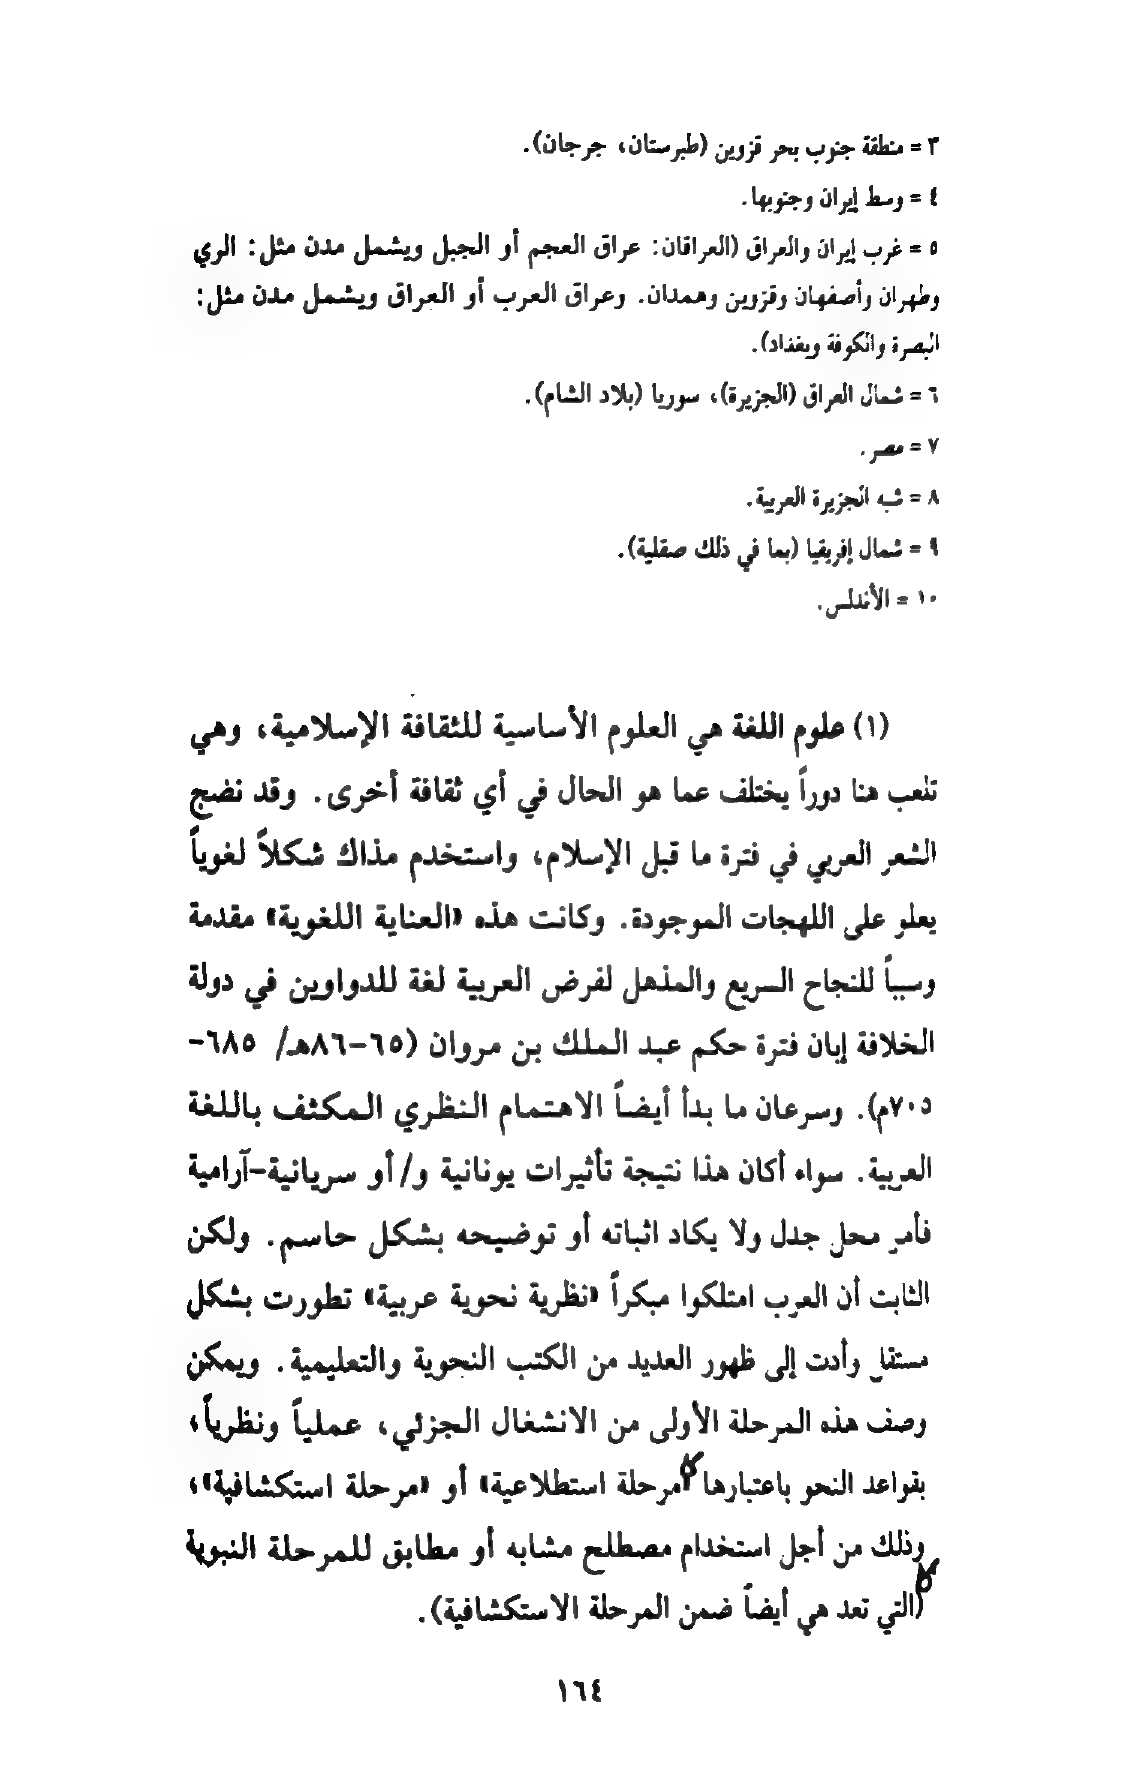 ٣ = منطقة جنوب بحر قزوين (طبرستان، جرجان).
٤ = وسط إيران وجنوبها.
٥ = غرب إيران والعراق (العراقان: عراق العجم أو الجبل ويشمل مدن مثل: الري
وطهران وأصفهان وقزوين وهمدان. وعراق العرب أو العراق ويشمل مدن مثل:
البصرة والكوفة وبغداد).
٦ = شمال العراق (الجزيرة)، سوريا (بلاد الشام).
٧ = مصر.
٨ = شبه الجزيرة العربية.
٩ = شمال إفريقيا (بما في ذلك صقلية).
١٠ = الأندلس.
(١) علوم اللغة هي العلوم الأساسية للثقافة الإسلامية، وهي
تلعب هنا دوراً يختلف عما هو الحال في أي ثقافة أخرى. وقد نضج
الشعر العربي في فترة ما قبل الإسلام، واستخدم مذاك شكلاً لغوياً
يعلو على اللهجات الموجودة. وكانت هذه «العناية اللغوية» مقدمة
وسبباً للنجاح السريع والمذهل لفرض العربية لغة للدواوين في دولة
الخلافة إبان فترة حكم عبد الملك بن مروان (٦٥-٨٦هـ/ ٦٨٥-
٧٠٥م). وسرعان ما بدأ أيضاً الاهتمام النظري المكثف باللغة
العربية. سواء أكان هذا نتيجة تأثيرات يونانية و/أو سريانية-آرامية
فأمر محل جدل ولا يكاد اثباته أو توضيحه بشكل حاسم. ولكن
الثابت أن العرب امتلكوا مبكراً «نظرية نحوية عربية» تطورت بشكل
مستقل وأدت إلى ظهور العديد من الكتب النحوية والتعليمية. ويمكن
وصف هذه المرحلة الأولى من الانشغال الجزئي، عملياً ونظرياً،
بقواعد النحو باعتبارها «مرحلة استطلاعية» أو «مرحلة استكشافية»،
وذلك من أجل استخدام مصطلح مشابه أو مطابق للمرحلة النبوية
(التي تعد هي أيضاً ضمن المرحلة الاستكشافية).
١٦٤